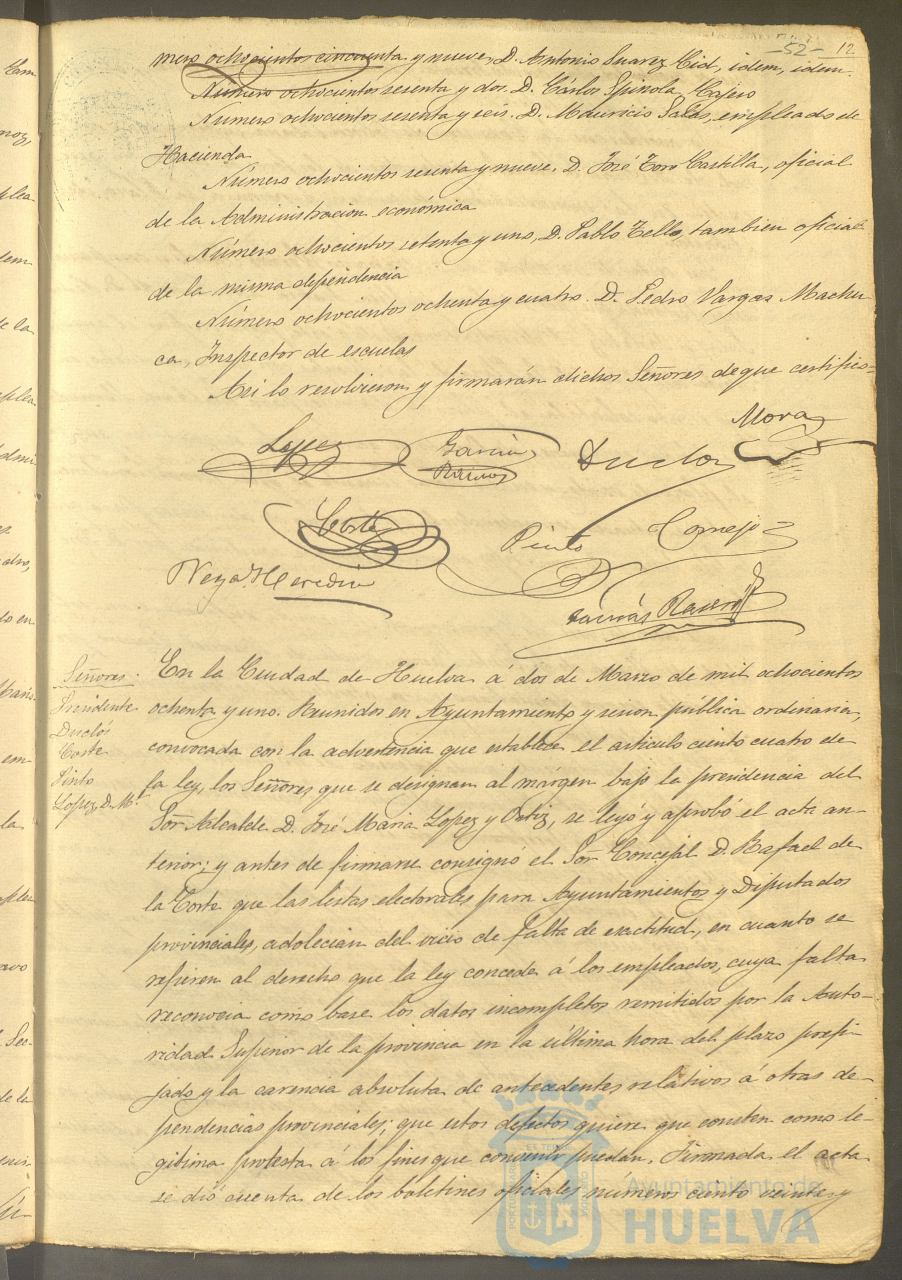 -52- 12
mero ochocientos cincuenta y nueve, D. Antonio Suarez Cid, idem, idem.
Número ochocientos sesenta y dos D. Cárlos Spinola, Cajero
Número ochocientos sesenta y seis. D. Mauricio Salas, empleado de
Hacienda
Número ochocientos sesenta y nueve, D. José Toro Castilla, oficial
de la Administracion económica
Número ochocientos setenta y uno, D. Pablo Tello, tambien oficial
de la misma dependencia
Número ochocientos ochenta y cuatro. D. Pedro Vargas Machu-
ca, Inspector de escuelas
Asi lo resolvieron y firmarán dichos Señores de que certifico=
Mora
Lopez García Duclos
Ramos
Coste Pinto Cornejo
Heredia
Señores.
Presidente
Duclós
Coste
Pinto
Lopez, D. M.l
En la Ciudad de Huelva á dos de Marzo de mil ochocientos
ochenta y uno. Reunidos en Ayuntamiento y sesion pública ordinaria,
convocada con la advertencia que establece el artículo ciento cuatro de
la ley, los Señores que se designan al márgen bajo la presidencia del
Sor Alcalde D. José Maria Lopez y Ortiz, se leyó y aprobó el acta an-
terior; y antes de firmarse consignó el Sor Concejal D. Rafael de
la Corte que las listas electorales para Ayuntamientos y Diputados
provinciales, adolecian del vicio de falta de exactitud, en cuanto se
refieren al derecho que la ley concede á los empleados, cuya falta
reconocia como base los datos incompletos remitidos por la Auto-
ridad Superior de la provincia en la última hora del plazo prefi-
jado y la carencia absoluta de antecedentes relativos á otras de-
pendencias provinciales; que estos defectos quiere que consten como le-
gitima protesta á los fines que convenir puedan. Firmada el acta
se dió cuenta de los boletines oficiales números ciento veinte y
Ayuntamiento de
HUELVA